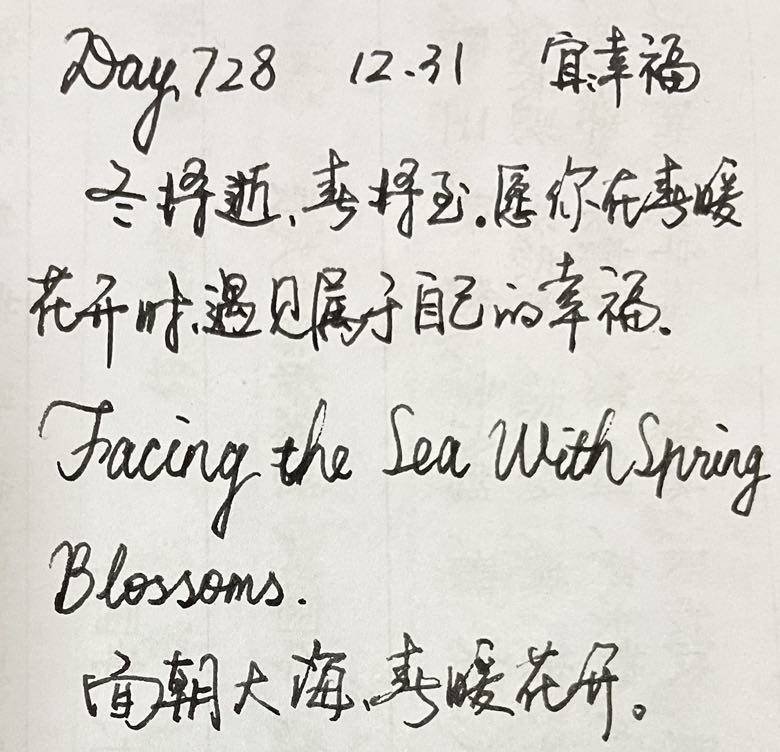 Day 728 12.31 宜:幸福
冬将逝、春将至.愿你在春暖
花开时,遇见属于自己的幸福.
Facing the Sea With Spring
Blossoms.
面朝大海,春暖花开。